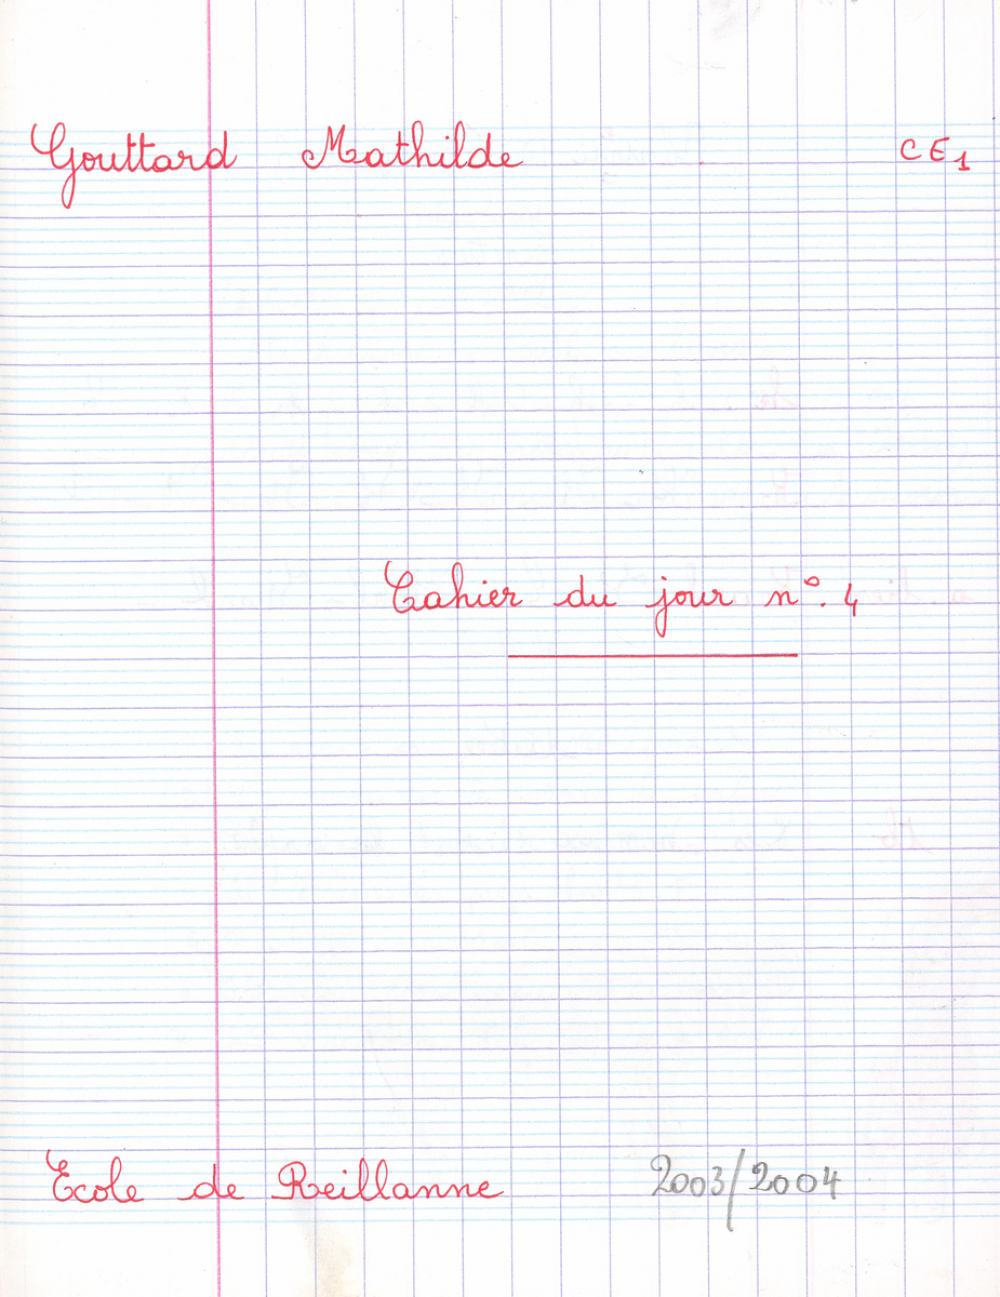 Gouttard Mathilde CE1
Cahier du jour n°. 4
Ecole de Reillanne 2003/2004